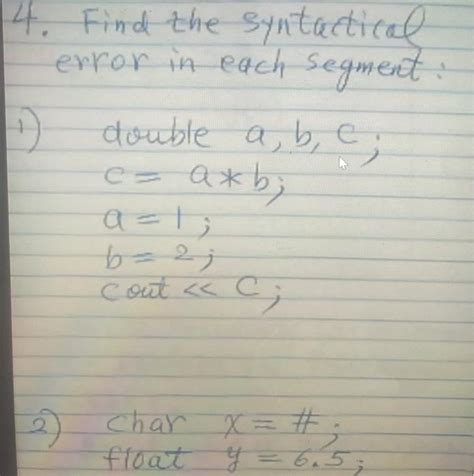 4. Find the syntactical
error in each segment:
1) double a, b, c;
c = a*b;
a = 1;
b = 2;
cout << c;
2) char x = #;
float y = 6.5;